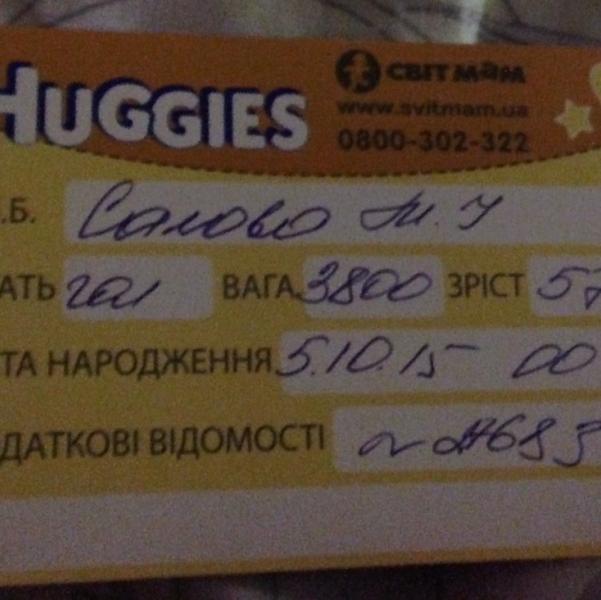 HUGGIES
СВІТ МАМ
www.svitmam.ua
0800-302-322
.Б.
АТЬ ВАГА 3800 ЗРІСТ 57
ТА НАРОДЖЕННЯ 5.10.15 00
ДАТКОВІ ВІДОМОСТІ